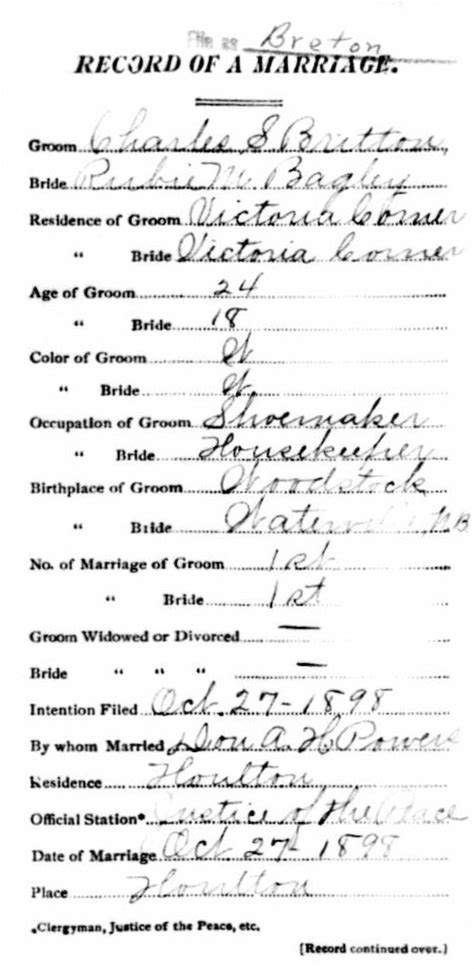 File as Breton
RECORD OF A MARRIAGE.
Groom Charles S Britton,
Bride Rubie M Bagley
Residence of Groom Victoria Corner
" Bride Victoria Corner
Age of Groom 24
" Bride 18
Color of Groom W
" Bride W
Occupation of Groom Shoemaker
" Bride Housekeeper
Birthplace of Groom Woodstock
" Bride NB
No. of Marriage of Groom 1st
" Bride 1st
Groom Widowed or Divorced —
Bride " " " —
Intention Filed Oct. 27-1898
By whom Married Don A. H Powers
Residence Houlton
Official Station* Justice of the Peace
Date of Marriage Oct. 27 1898
Place Houlton
*Clergyman, Justice of the Peace, etc.
[Record continued over.]